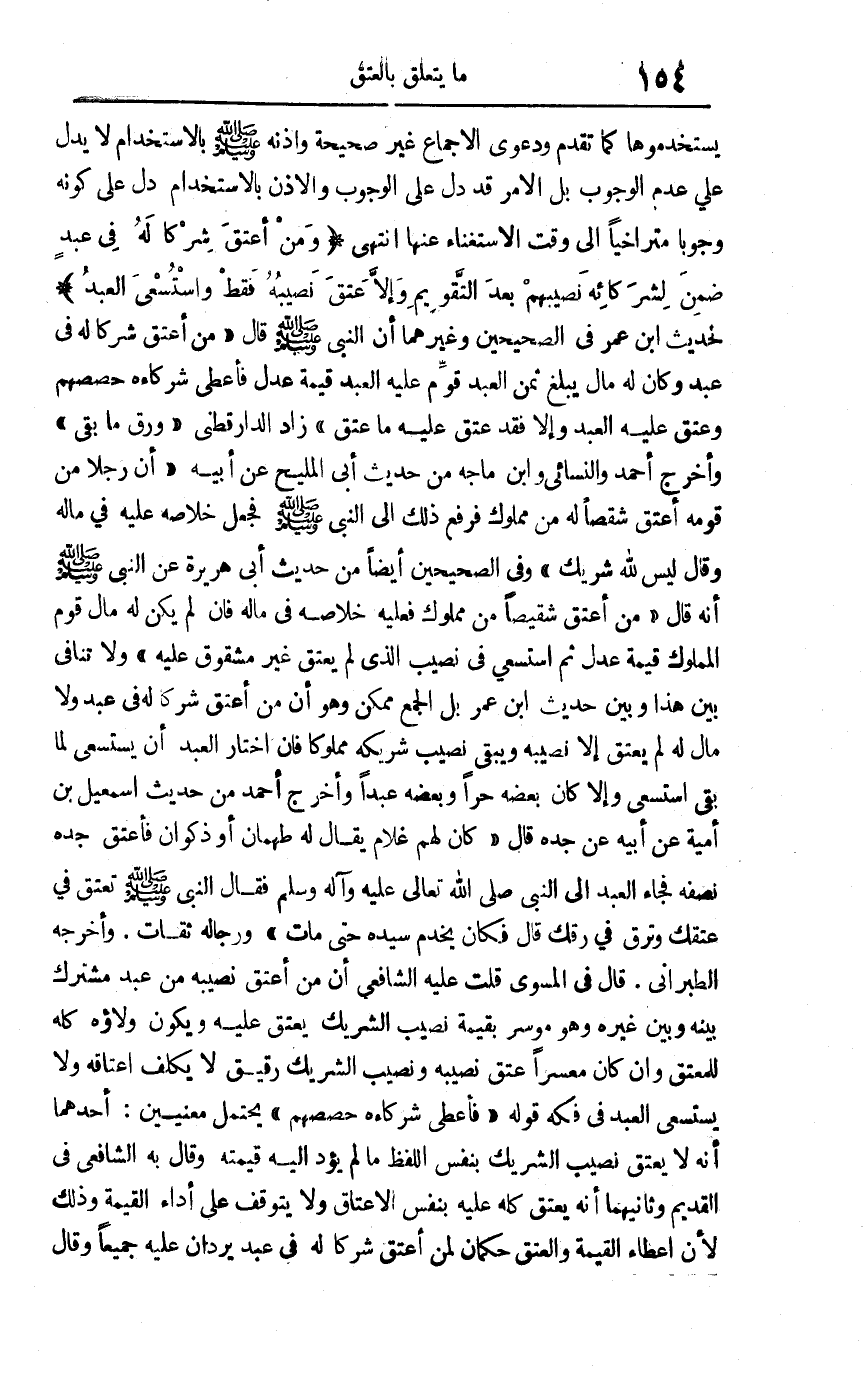 ١٥٤ ما يتعلق بالعتق
يستخدموها كما تقدم ودعوى الاجماع غير صحيحة واذنه ﷺ بالاستخدام لا يدل
علي عدم الوجوب بل الامر قد دل على الوجوب والاذن بالاستخدام دل على كونه
وجوبا متراخياً الى وقت الاستغناء عنها انتهى ﴿ وَمَنْ أعتقَ شِرْكا لَهُ فِى عبدٍ
ضمِنَ لِشرَ كائِهِ نَصيبهمْ بعدَ التَّقوِيمِ وَإلاَّ عَتقَ نَصيبهُ فَقطْ واسْتُسْعيَ العبدُ ﴾
لحديث ابن عمر فى الصحيحين وغيرهما أن النبى ﷺ قال « من أعتق شركا له فى
عبد وكان له مال يبلغ ثمن العبد قوِّم عليه العبد قيمة عدل فأعطى شركاءه حصصهم
وعتق عليه العبد وإلا فقد عتق عليه ما عتق » زاد الدارقطنى « ورق ما بقى »
وأخرج أحمد والنسائى وابن ماجه من حديث أبى المليح عن أبيه « أن رجلا من
قومه أعتق شقصاً له من مملوك فرفع ذلك الى النبى ﷺ فجعل خلاصه عليه في ماله
وقال ليس لله شريك » وفى الصحيحين أيضاً من حديث أبى هريرة عن النبى ﷺ
أنه قال « من أعتق شقيصاً من مملوك فعليه خلاصه فى ماله فان لم يكن له مال قوم
المملوك قيمة عدل ثم استسعي فى نصيب الذى لم يعتق غير مشقوق عليه » ولا تنافى
بين هذا وبين حديث ابن عمر بل الجمع ممكن وهو أن من أعتق شركا له فى عبد ولا
مال له لم يعتق إلا نصيبه ويبقى نصيب شريكه مملوكا فان اختار العبد أن يستسعى لما
بقى استسعى وإلا كان بعضه حراً وبعضه عبداً وأخرج أحمد من حديث اسمعيل بن
أمية عن أبيه عن جده قال « كان لهم غلام يقال له طهمان أو ذكوان فأعتق جده
نصفه فجاء العبد الى النبى صلى الله تعالى عليه وآله وسلم فقال النبى ﷺ تعتق في
عتقك وترق في رقك قال فكان يخدم سيده حتى مات » ورجاله ثقات . وأخرجه
الطبرانى . قال فى المسوى قلت عليه الشافعي أن من أعتق نصيبه من عبد مشترك
بينه وبين غيره وهو موسر بقيمة نصيب الشريك يعتق عليه ويكون ولاؤه كله
للمعتق وان كان معسراً عتق نصيبه ونصيب الشريك رقيق لا يكلف اعتاقه ولا
يستسعى العبد فى فكه قوله « فأعطى شركاءه حصصهم » يحتمل معنيين : أحدهما
أنه لا يعتق نصيب الشريك بنفس اللفظ ما لم يؤد اليه قيمته وقال به الشافعى فى
القديم وثانيهما أنه يعتق كله عليه بنفس الاعتاق ولا يتوقف على أداء القيمة وذلك
لأن اعطاء القيمة والعتق حكمان لمن أعتق شركا له فى عبد يردان عليه جميعاً وقال